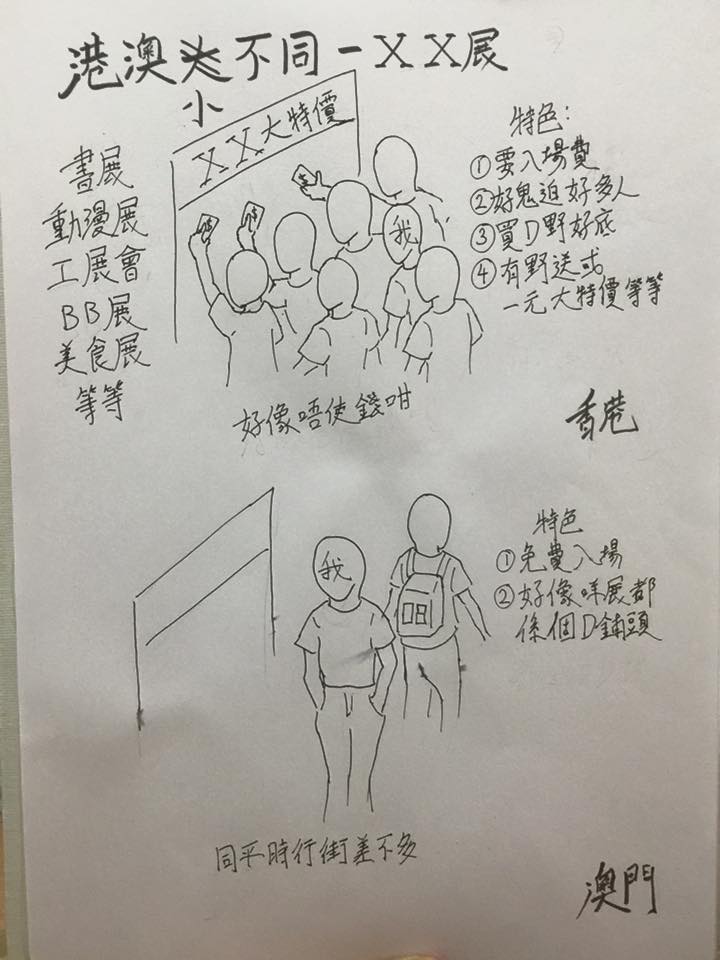 港澳大不同－ＸＸ展
小
書展
動漫展
工展會
BB展
美食展
等等
XX大特價
我
特色：
①要入場費
②好鬼迫好多人
③買D野好底
④有野送或
一元大特價等等
好像唔使錢咁
香港
我
特色
①免費入場
②好像咩展都
係個D鋪頭
同平時行街差不多
澳門